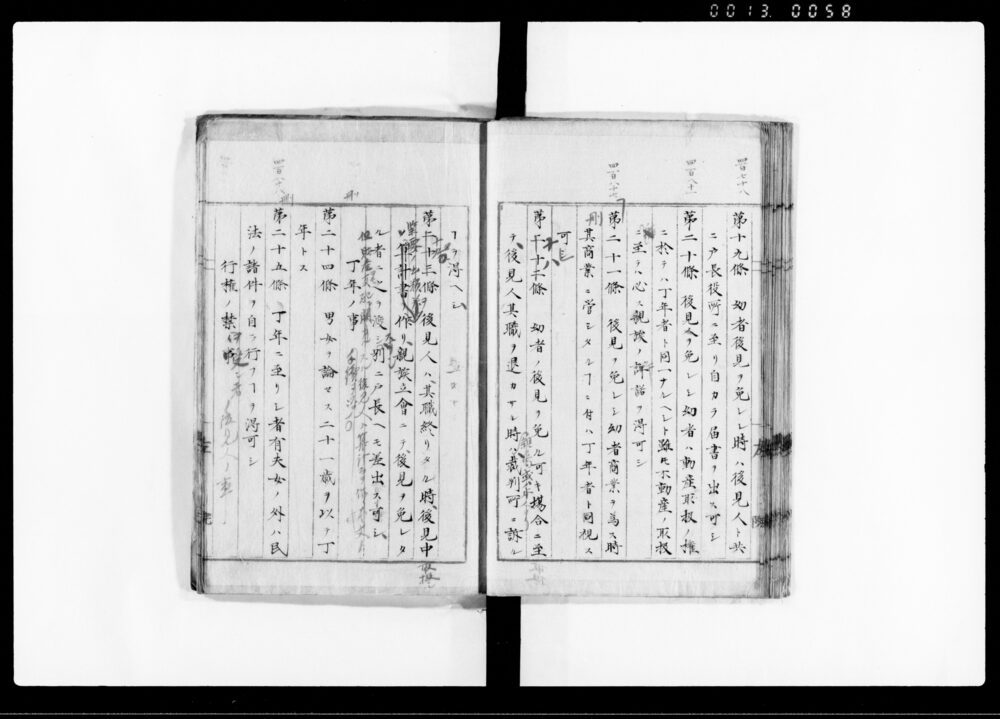 0013 0058
四百七十八
第十九條 幼者後見ヲ免レシ時ハ後見人ト共
ニ戸長役所ニ至リ自カラ届書ヲ出ス可シ
四百八十一
第二十條 後見ヲ免レシ幼者ハ動産取扱ノ權
ニ於テハ丁年者ト同一ナルヘシト雖モ不動産ノ取扱
ニ至テハ必ス親族ノ許諾ヲ得可シ
四百八十七
第二十一條 後見ヲ免レシ幼者商業ヲ為ス時
刪
其商業ニ管シタルヿニ付ハ丁年者ト同視ス
可シ
第二十二條 幼者ノ後見ヲ免ル可キ場合ニ至
十八
テ後見人其職ヲ退カサル時ハ裁判所ニ訴ル
ヿヲ得ヘシ
第二十三條 後見人ハ其職終リタル時後見中
ノ計書ヲ作リ親族立會ニテ後見ヲ免レタ
ル者ニ之ヲ渡シ別ニ戸長ヘモ差出ス可シ
丁年ノ事
刪
第二十四條 男女ヲ論セス二十一歳ヲ以テ丁
年トス
四百八十八
刪
第二十五條 丁年ニ至リシ者有夫女ノ外ハ民
法ノ諸件ヲ自ラ行フヿヲ得可シ
行權ノ禁